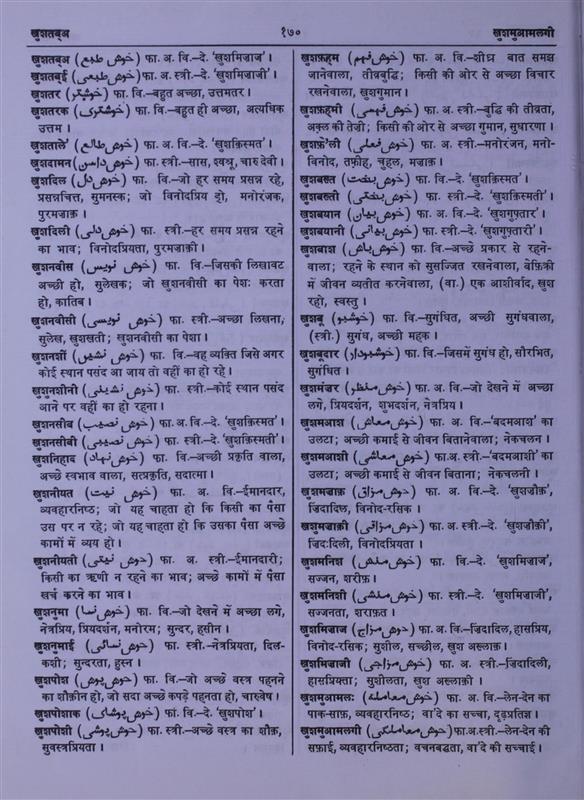 ख़ुशतबअ
१७०
ख़ुशमुआमलगी
ख़ुशतबअ (خوش طبع) फा. अ. वि.–दे. ‘ख़ुशमिज़ाज’।
ख़ुशतबई (خوش طبعی) फा. अ. स्त्री.–दे. ‘ख़ुशमिज़ाजी’।
ख़ुशतर (خوشتر) फा. वि.–बहुत अच्छा, उत्तमतर।
ख़ुशतरक (خوشترک) फा. वि.–बहुत ही अच्छा, अत्यधिक
उत्तम।
ख़ुशताले’ (خوش طالع) फा. अ. वि.–दे. ‘ख़ुशक़िस्मत’।
ख़ुशदामन (خوش دامن) फा. स्त्री.–सास, श्वश्रू, चारुदेवी।
ख़ुशदिल (خوش دل) फा. वि.–जो हर समय प्रसन्न रहे,
प्रसन्नचित्त, सुमनस्क; जो विनोदप्रिय हो, मनोरंजक,
पुरमज़ाक़।
ख़ुशदिली (خوش دلی) फा. स्त्री.–हर समय प्रसन्न रहने
का भाव; विनोदप्रियता, पुरमज़ाक़ी।
ख़ुशनवीस (خوش نویس) फा. वि.–जिसकी लिखावट
अच्छी हो, सुलेखक; जो ख़ुशनवीसी का पेशः करता
हो, कातिब।
ख़ुशनवीसी (خوش نویسی) फा. स्त्री.–अच्छा लिखना,
सुलेख, ख़ुशख़ती; ख़ुशनवीसी का पेशा।
ख़ुशनशीं (خوش نشیں) फा. वि.–वह व्यक्ति जिसे अगर
कोई स्थान पसंद आ जाय तो वहीं का हो रहे।
ख़ुशनशीनी (خوش نشینی) फा. स्त्री.–कोई स्थान पसंद
आने पर वहीं का हो रहना।
ख़ुशनसीब (خوش نصیب) फा. अ. वि.–दे. ‘ख़ुशक़िस्मत’।
ख़ुशनसीबी (خوش نصیبی) फा. अ. स्त्री.–दे. ‘ख़ुशक़िस्मती’।
ख़ुशनिहाद (خوش نہاد) फा. वि.–अच्छी प्रकृति वाला,
अच्छे स्वभाव वाला, सत्प्रकृति, सदात्मा।
ख़ुशनीयत (خوش نیت) फा. अ. वि.–ईमानदार,
व्यवहारनिष्ठ; जो यह चाहता हो कि किसी का पैसा
उस पर न रहे; जो यह चाहता हो कि उसका पैसा अच्छे
कामों में व्यय हो।
ख़ुशनीयती (خوش نیتی) फा. अ. स्त्री.–ईमानदारी;
किसी का ऋणी न रहने का भाव; अच्छे कामों में पैसा
ख़र्च करने का भाव।
ख़ुशनुमा (خوش نما) फा. वि.–जो देखने में अच्छा लगे,
नेत्रप्रिय, प्रियदर्शन, मनोरम; सुन्दर, हसीन।
ख़ुशनुमाई (خوش نمائی) फा. स्त्री.–नेत्रप्रियता, दिल-
कशी; सुन्दरता, हुस्न।
ख़ुशपोश (خوش پوش) फा. वि.–जो अच्छे वस्त्र पहनने
का शौक़ीन हो, जो सदा अच्छे कपड़े पहनता हो, चारुवेष।
ख़ुशपोशाक (خوش پوشاک) फा. वि.–दे. ‘ख़ुशपोश’।
ख़ुशपोशी (خوش پوشی) फा. स्त्री.–अच्छे वस्त्र का शौक़,
सुवस्त्रप्रियता।
ख़ुशफ़ह्म (خوش فہم) फा. अ. वि.–शीघ्र बात समझ
जानेवाला, तीव्रबुद्धि; किसी की ओर से अच्छा विचार
रखनेवाला, ख़ुशगुमान।
ख़ुशफ़हमी (خوش فہمی) फा. अ. स्त्री.–बुद्धि की तीव्रता,
अक़्ल की तेज़ी; किसी की ओर से अच्छा गुमान, सुधारणा।
ख़ुशफ़े’ली (خوش فعلی) फा. अ. स्त्री.–मनोरंजन, मनो-
विनोद, तफ़्रीह, चुहल, मज़ाक़।
ख़ुशबख़्त (خوش بخت) फा. वि.–दे. ‘ख़ुशक़िस्मत’।
ख़ुशबख़्ती (خوش بختی) फा. स्त्री.–दे. ‘ख़ुशक़िस्मती’।
ख़ुशबयान (خوش بیان) फा. अ. वि.–दे. ‘ख़ुशगुफ़्तार’।
ख़ुशबयानी (خوش بیانی) फा. अ. स्त्री.–दे. ‘ख़ुशगुफ़्तारी’।
ख़ुशबाश (خوش باش) फा. वि.–अच्छे प्रकार से रहने-
वाला; रहने के स्थान को सुसज्जित रखनेवाला, बेफ़िक्री
में जीवन व्यतीत करनेवाला, (वा.) एक आशीर्वाद, ख़ुश
रहो, स्वस्तु।
ख़ुशबू (خوشبو) फा. वि.–सुगंधित, अच्छी सुगंधवाला,
(स्त्री.) सुगंध, अच्छी महक।
ख़ुशबूदार (خوشبودار) फा. वि.–जिसमें सुगंध हो, सौरभित,
सुगंधित।
ख़ुशमंज़र (خوش منظر) फा. अ. वि.–जो देखने में अच्छा
लगे, प्रियदर्शन, शुभदर्शन, नेत्रप्रिय।
ख़ुशमआश (خوش معاش) फा. अ. वि.–‘बदमआश’ का
उलटा; अच्छी कमाई से जीवन बितानेवाला; नेकचलन।
ख़ुशमआशी (خوش معاشی) फा. अ. स्त्री.–‘बदमआशी’ का
उलटा; अच्छी कमाई से जीवन बिताना; नेकचलनी।
ख़ुशमज़ाक़ (خوش مزاق) फा. अ. वि.–दे. ‘ख़ुशज़ौक़’,
ज़िंदादिल, विनोद-रसिक।
ख़ुशमज़ाक़ी (خوش مزاقی) फा. अ. स्त्री.–दे. ‘ख़ुशज़ौक़ी’,
ज़िंदःदिली, विनोदप्रियता।
ख़ुशमनिश (خوش منش) फा. वि.–दे. ‘ख़ुशमिज़ाज’,
सज्जन, शरीफ़।
ख़ुशमनिशी (خوش منشی) फा. स्त्री.–दे. ‘ख़ुशमिज़ाजी’,
सज्जनता, शराफ़त।
ख़ुशमिज़ाज (خوش مزاج) फा. अ. वि.–ज़िंदादिल, हासप्रिय,
विनोद-रसिक; सुशील, सच्छील, ख़ुश अख़्लाक़।
ख़ुशमिज़ाजी (خوش مزاجی) फा. अ. स्त्री.–ज़िंदादिली,
हासप्रियता; सुशीलता, ख़ुश अख़्लाक़ी।
ख़ुशमुआमलः (خوش معاملہ) फा. अ. वि.–लेन-देन का
पाक-साफ़, व्यवहारनिष्ठ; वा’दे का सच्चा, दृढ़प्रतिज्ञ।
ख़ुशमुआमलगी (خوش معاملگی) फा.अ.स्त्री.–लेन-देन की
सफ़ाई, व्यवहारनिष्ठता; वचनबद्धता, वा’दे की सच्चाई।